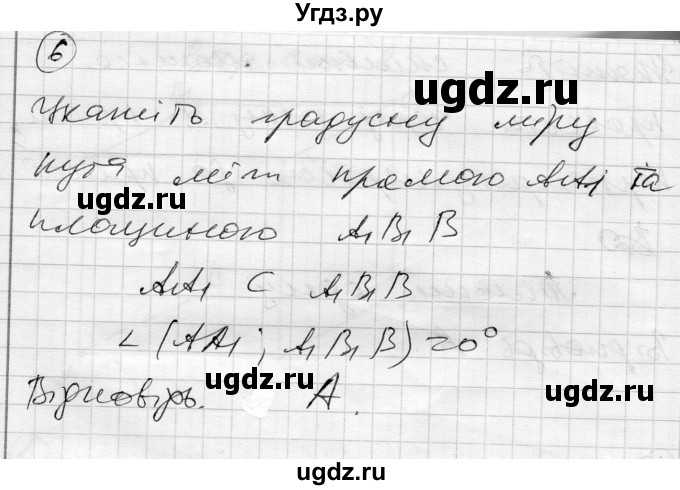 Угдз.ру
6
Укажіть градусну міру
кута між прямою AA₁ та
площиною A₁B₁B
AA₁ ⊂ A₁B₁B
∠(AA₁; A₁B₁B)=0°
Відповідь. A.
ugdz.ru
ugdz.ru
ugdz.ru
ugdz.ru
ugdz.ru
ugdz.ru
ugdz.ru